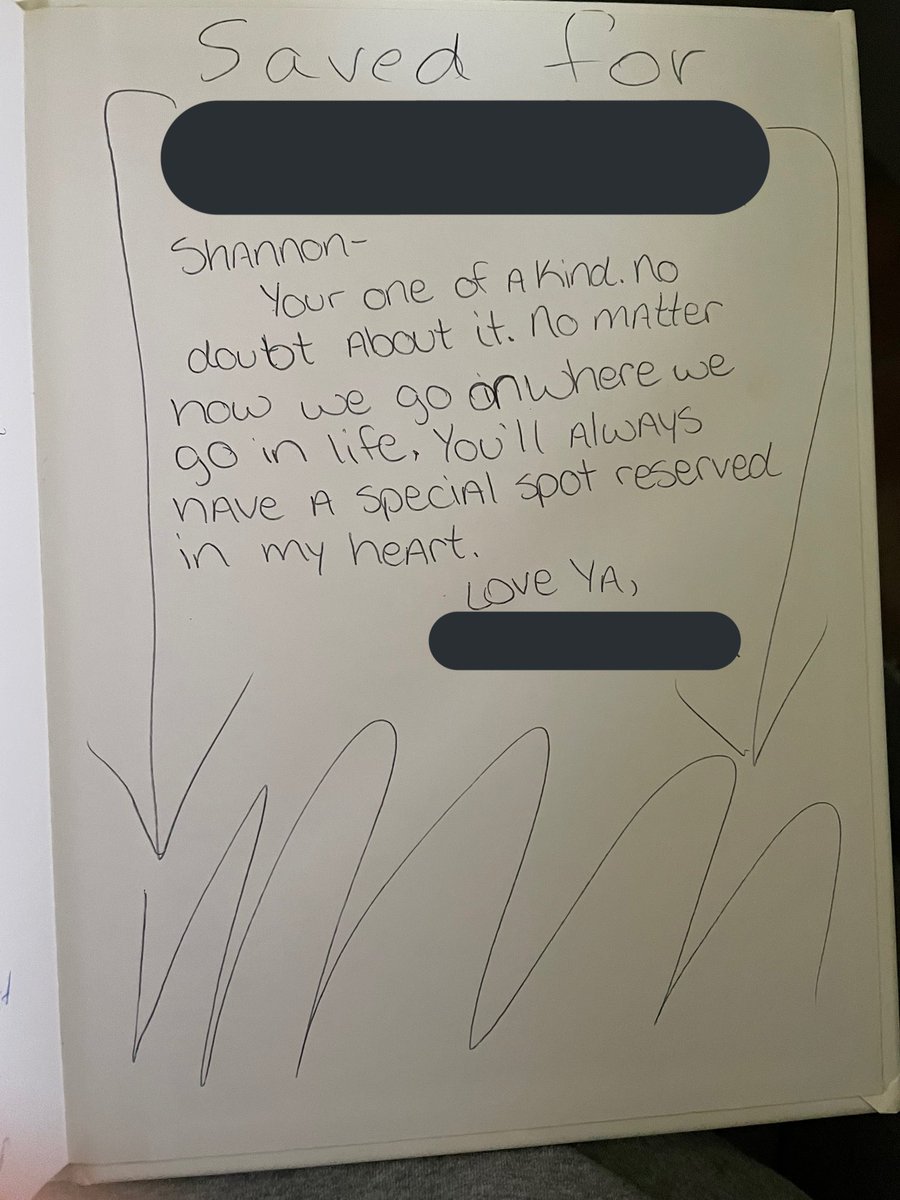 Saved for
Shannon-
Your one of a kind. no
doubt about it. No matter
how we go on where we
go in life, You'll always
have a special spot reserved
in my heart.
Love Ya,